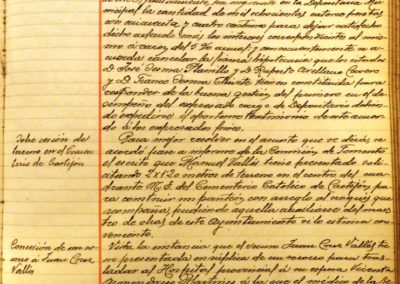 la cantidad de mil ochocientas catorce pesetas
con cincuenta y cuatro centimos para dejar satisfecho
dicho adeudo más los intereses correspondientes al mismo
á razon del 5 % anual y consecuentemente se a-
cuerda cancelar la fianza hipotecaria que los citados
D. José Serma Planillo y D. Ruperto Arellano Cavero
y D. Serma tienen constituida para
responder de la buena gestion del primero en el de-
sempeño del expresado cargo de Depositario debien-
do expedirse el oportuno testimonio de este acuer-
do á los expresados fines.
Sobre cesión de
terreno en el Cemen-
terio de Castejón
Para mejor resolver en el asunto que se dirá, se
acordó pase á informe de la Comisión de Fomento
el escrito que Manuel Vallés tiene presentado soli-
citando 2x1'20 metros de terreno en el centro del cua-
drante del Cementerio Catolico de Castejón pa-
ra construir un panteón con arreglo al croquis que
acompaña pudiendo aquella auxiliarse del maes-
tro de obras de este Ayuntamiento si lo estima con-
veniente.
Concesión de un so-
corro á Juan Cruz
Vallés
Vista la instancia que el vecino Juan Cruz Vallés tie-
ne presentada en súplica de un socorro para tras-
ladar al Hospital provincial á su esposa Vicenta
Martinez á la que el médico de la Be-